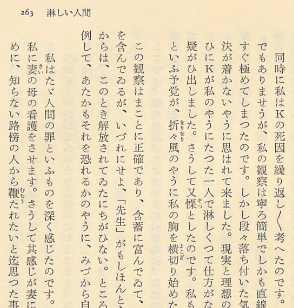 263 淋しい人間
同時に私はKの死因を繰り返し〱考へたのです。
でもありませうが、私の観察は寧ろ簡単でしかも直線
すぐ極めてしまつたのです。しかし段々落ち付いた気
決が着かないやうに思はれて来ました。現実と理想の
ひにKが私のやうにたつた一人で淋しくつて仕方がな
疑がひ出しました。さうして又慄としたのです。私も
といふ予覚が、折々風のやうに私の胸を横切り始めた
この観察はまことに正確であり、含蓄に富んでゐて、
を含んでゐるが、いづれにせよ、「先生」がもしほんと
からは、このとき解放されてゐたにちがひない。ところ
例して、あたかもそれを恐れるかのやうに、みづから自
私はたゞ人間の罪といふものを深く感じたのです。
私に妻の母の看護をさせます。さうして其感じが妻に
めに、知らない路傍の人から鞭たれたいと迄思つた事